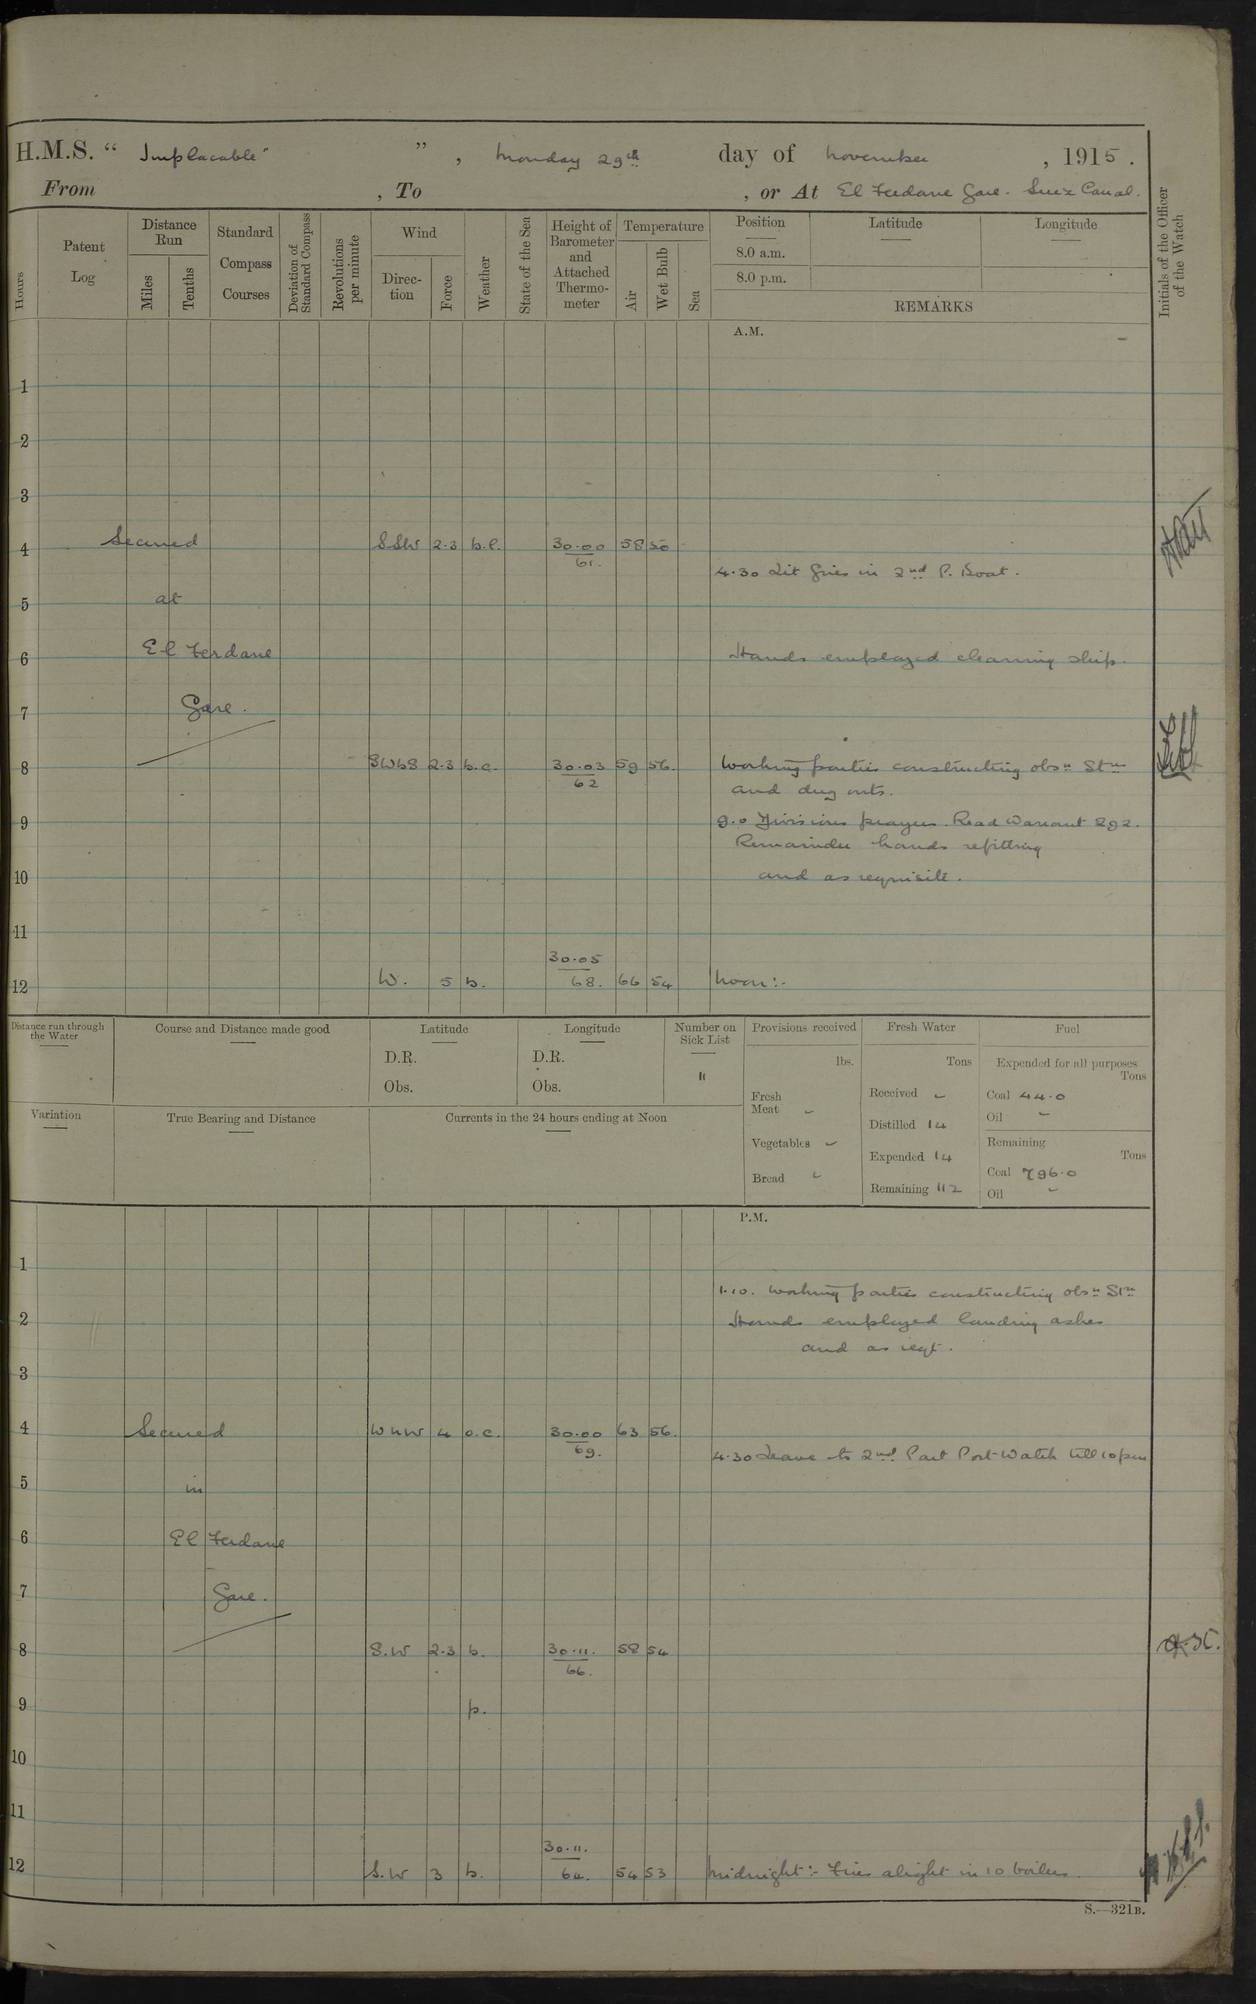 H.M.S. “ Implacable ” , Monday 29th day of November , 1915 .
From , To , or At El Ferdane Gare. Suez Canal.
Hours
Patent Log
Distance Run
Miles
Tenths
Standard Compass Courses
Deviation of Standard Compass
Revolutions per minute
Wind
Direc-tion
Force
Weather
State of the Sea
Height of Barometer and Attached Thermo-meter
Temperature
Air
Wet Bulb
Sea
Position
8.0 a.m.
8.0 p.m.
Latitude
Longitude
REMARKS
Initials of the Officer of the Watch
A.M.
1
2
3
4 Secured SSW 2.3 b.c. 30.00 58 50
61.
4.30 Lit fires in 2nd P. Boat.
5 at
6 El Ferdane Hands employed cleaning ship.
7 Gare.
8 SWbS 2.3 b.c. 30.03 59 56. Working parties constructing obsn Stns
62 and dug outs.
9 9.0 Divisions prayers. Read Warrant 292.
Remainder hands refitting
10 and as requisite.
11
30.05
12 W. 5 b. 68. 66 54 Noon:-
Distance run through the Water
Course and Distance made good
Latitude
D.R.
Obs.
Longitude
D.R.
Obs.
Number on Sick List
11
Provisions received
lbs.
Fresh Meat -
Vegetables -
Bread -
Fresh Water
Tons
Received -
Distilled 14
Expended 14
Remaining 112
Fuel
Expended for all purposes
Tons
Coal 44.0
Oil -
Remaining
Tons
Coal 796.0
Oil -
Variation
True Bearing and Distance
Currents in the 24 hours ending at Noon
P.M.
1
1.10. Working parties constructing obsn Stn
2 Hands employed landing ashes
and as reqt.
3
4 Secured WNW 4 o.c. 30.00 63 56.
69.
4.30 Leave to 2nd Part Port Watch till 10 pm
5 in
6 El Ferdane
7 Gare.
8 S.W 2.3 b. 30.11. 58 54
66.
9 p.
10
11
30.11.
12 S.W 3 b. 64. 54 53 Midnight:- Fires alight in 10 boilers.
S.—321B.